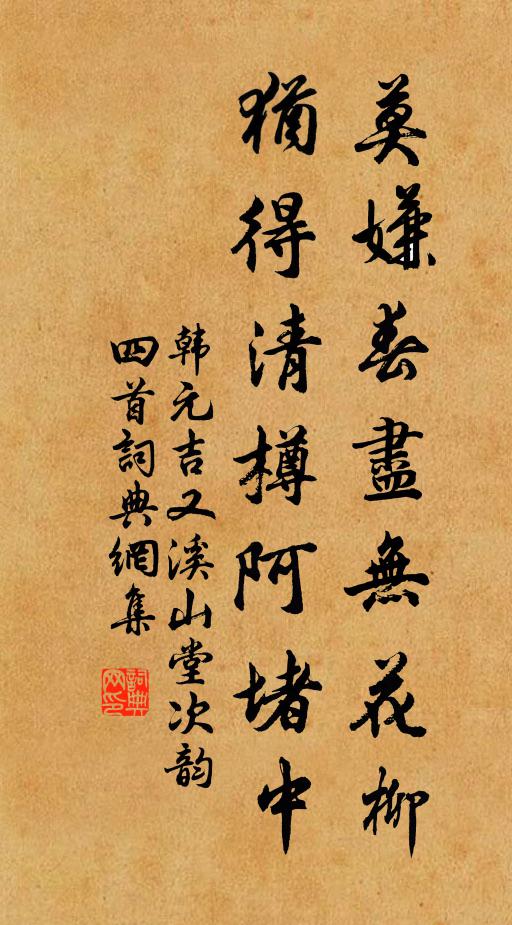 莫嫌春盡無花柳
猶得清樽阿堵中
韩元吉又溪山堂次韵
四首詞典網集
詞典網印